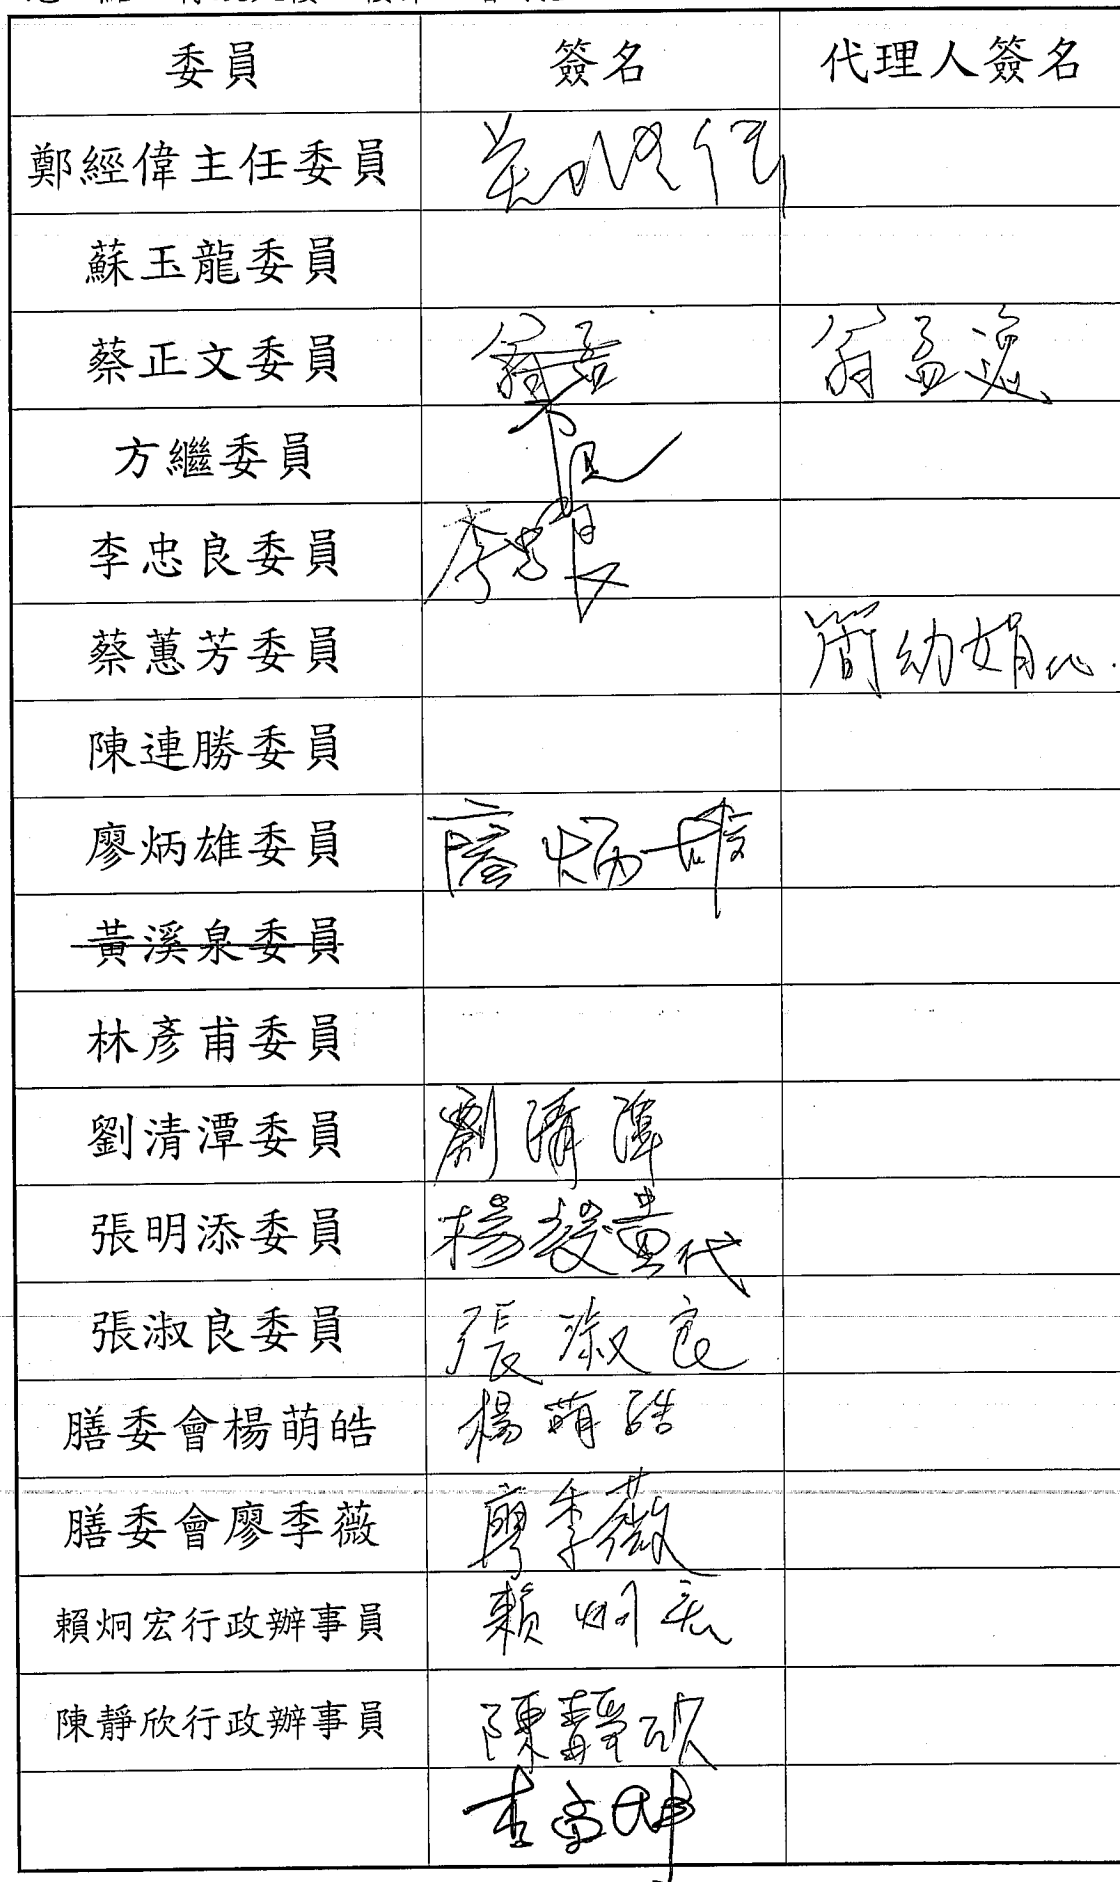 委員 簽名 代理人簽名
鄭經偉主任委員 鄭經偉
蘇玉龍委員
蔡正文委員 翁孟 翁孟逸
方繼委員
李忠良委員 李忠良
蔡蕙芳委員 簡幼娟代.
陳連勝委員
廖炳雄委員 廖炳雄
黃溪泉委員
林彥甫委員
劉清潭委員 劉清潭
張明添委員 楊發貴代
張淑良委員 張淑良
膳委會楊萌皓 楊萌皓
膳委會廖季薇 廖季薇
賴炯宏行政辦事員 賴炯宏
陳靜欣行政辦事員 陳靜欣